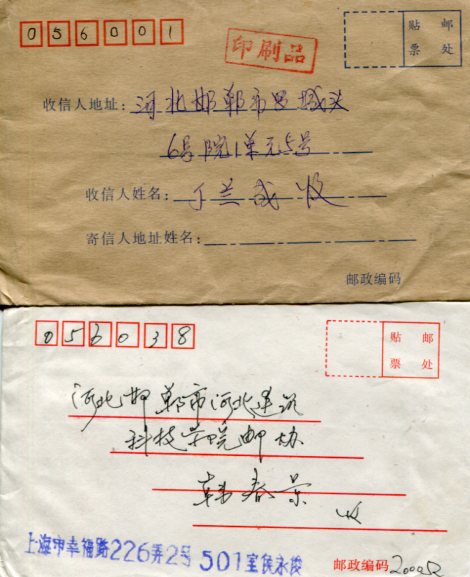 056001
印刷品
贴 邮
票 处
收信人地址：河北邯郸市邑城头
6号院1单元5号
收信人姓名：丁兰成 收
寄信人地址姓名：
邮政编码
056038
贴 邮
票 处
河北邯郸市河北建筑
科技学院邮协
韩春景
收
上海市幸福路226弄2号501室侯永俊
邮政编码